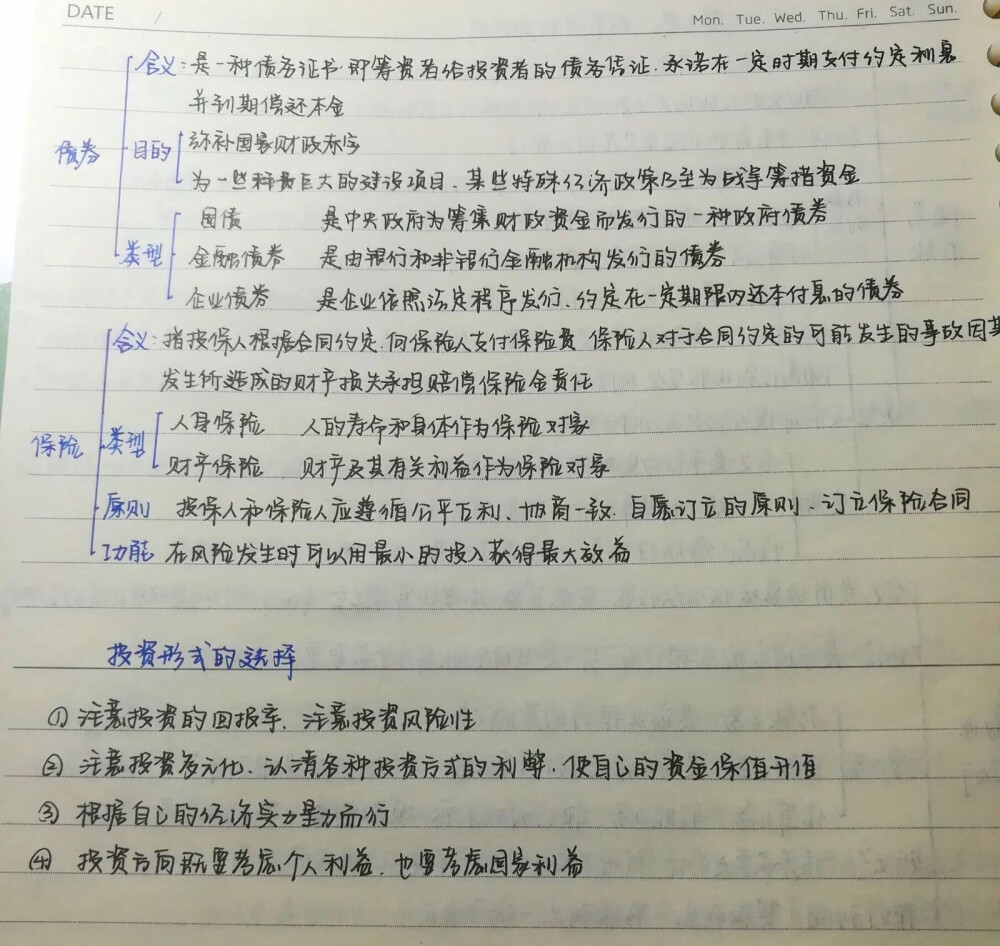 DATE /
Mon. Tue. Wed. Thu. Fri. Sat. Sun.
含义：是一种债务证书.即筹资者给投资者的债务凭证.承诺在一定时期支付约定利息
并到期偿还本金
债券 目的 弥补国家财政赤字
为一些耗费巨大的建设项目、某些特殊经济政策乃至为战争筹措资金
国债 是中央政府为筹集财政资金而发行的一种政府债券
类型 金融债券 是由银行和非银行金融机构发行的债券
企业债券 是企业依照法定程序发行、约定在一定期限内还本付息的债券
含义：指投保人根据合同约定.向保险人支付保险费 保险人对于合同约定的可能发生的事故因其
发生所造成的财产损失承担赔偿保险金责任
人身保险 人的寿命和身体作为保险对象
保险 类型
财产保险 财产及其有关利益作为保险对象
原则 投保人和保险人应遵循公平互利、协商一致.自愿订立的原则、订立保险合同
功能 在风险发生时可以用最小的投入获得最大效益
投资形式的选择
① 注意投资的回报率、注意投资风险性
② 注意投资多元化.认清各种投资方式的利弊.使自己的资金保值升值
③ 根据自己的经济实力量力而行
④ 投资方向既要考虑个人利益.也要考虑国家利益